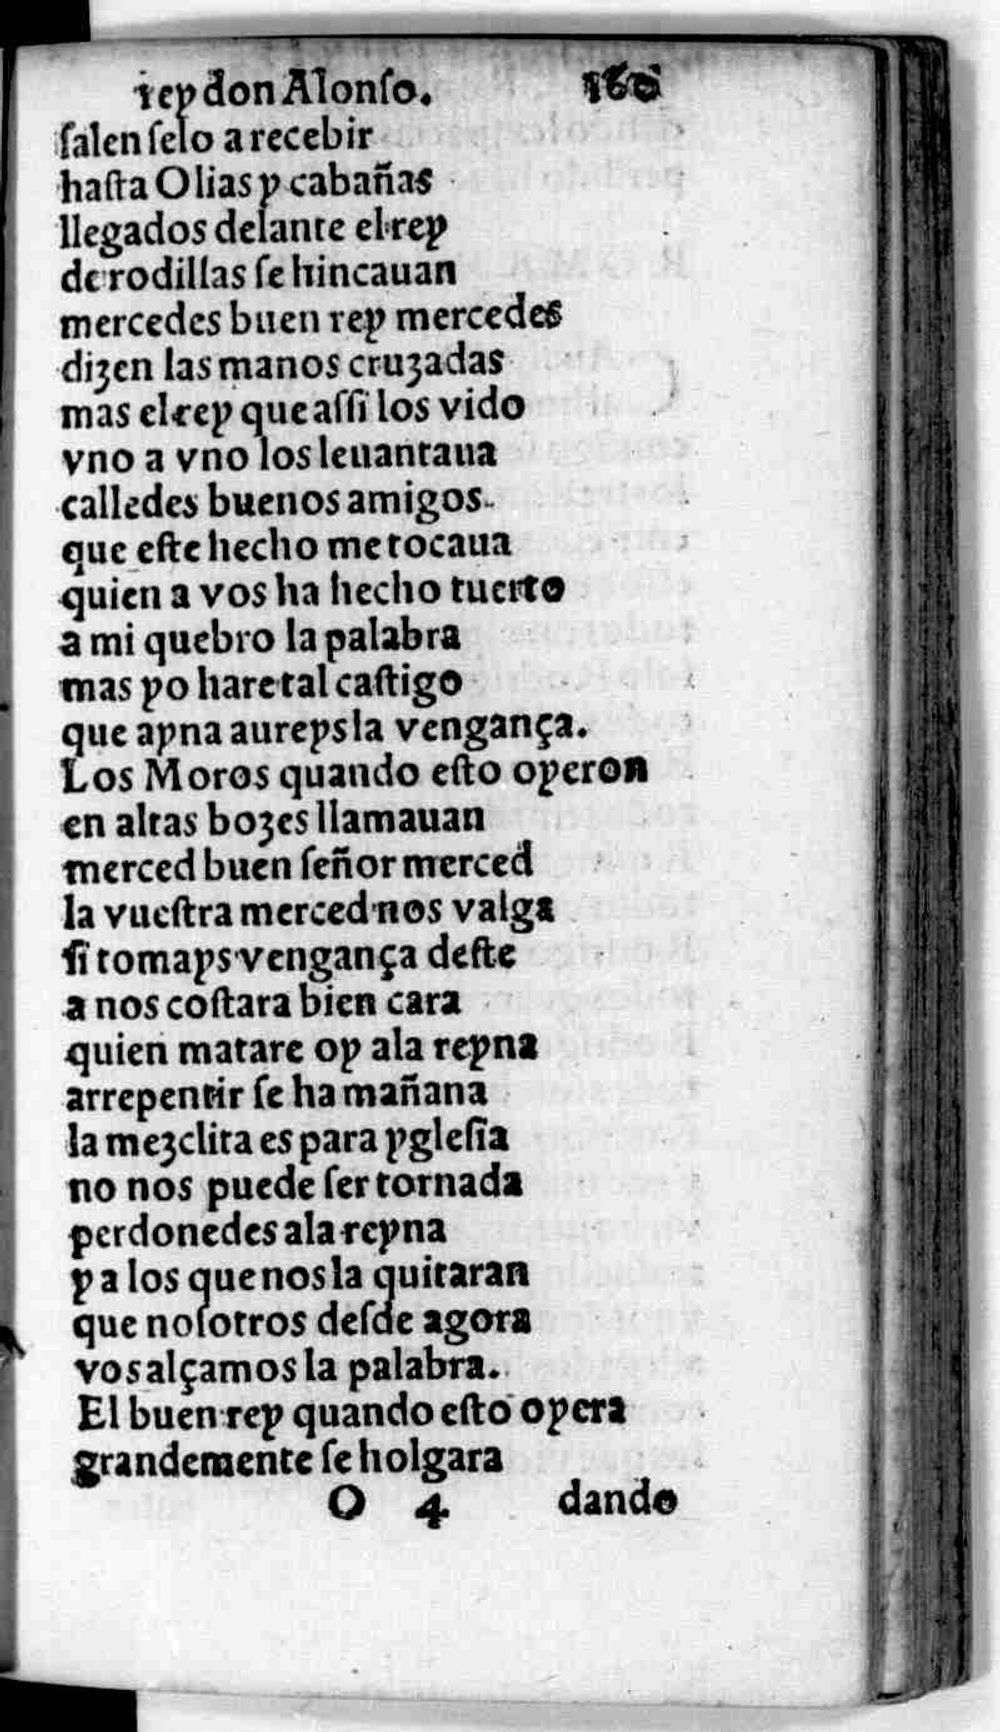 rey don Alonſo. 160
ſalen ſelo a recebir
haſta Olias y cabañas
llegados delante el rey
de rodillas ſe hincauan
mercedes buen rey mercedes
dizen las manos cruzadas
mas el rey que aſſi los vido
vno a vno los leuantaua
calledes buenos amigos.
que eſte hecho me tocaua
quien a vos ha hecho tuerto
a mi quebro la palabra
mas yo hare tal caſtigo
que ayna aureys la vengança.
Los Moros quando eſto oyeron
en altas bozes llamauan
merced buen ſeñor merced
la vueſtra merced nos valga
ſi tomays vengança deſte
a nos coſtara bien cara
quien matare oy ala reyna
arrepentir ſe ha mañana
la mezclita es para ygleſia
no nos puede ſer tornada
perdonedes ala reyna
y a los que nos la quitaran
que noſotros deſde agora
vos alçamos la palabra.
El buen rey quando eſto oyera
grandemente ſe holgara
O 4 dando